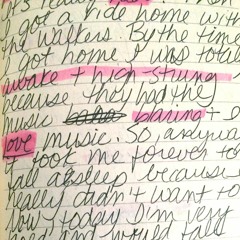 it's really
I got a ride home with
the walkers. By the time
I got home I was total
awake + high-strung
because they had the
music blaring + I
love music. So, anyway
it took me forever to
fall asleep because
really didn't want to
now, today I'm very
and would talk